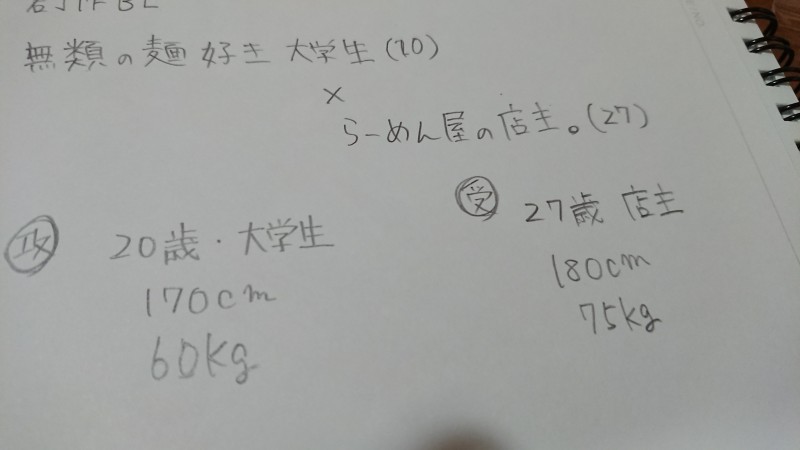 無類の麺好き 大学生(20)
×
らーめん屋の店主。(27)
攻 20歳・大学生
170cm
60kg
受 27歳 店主
180cm
75kg